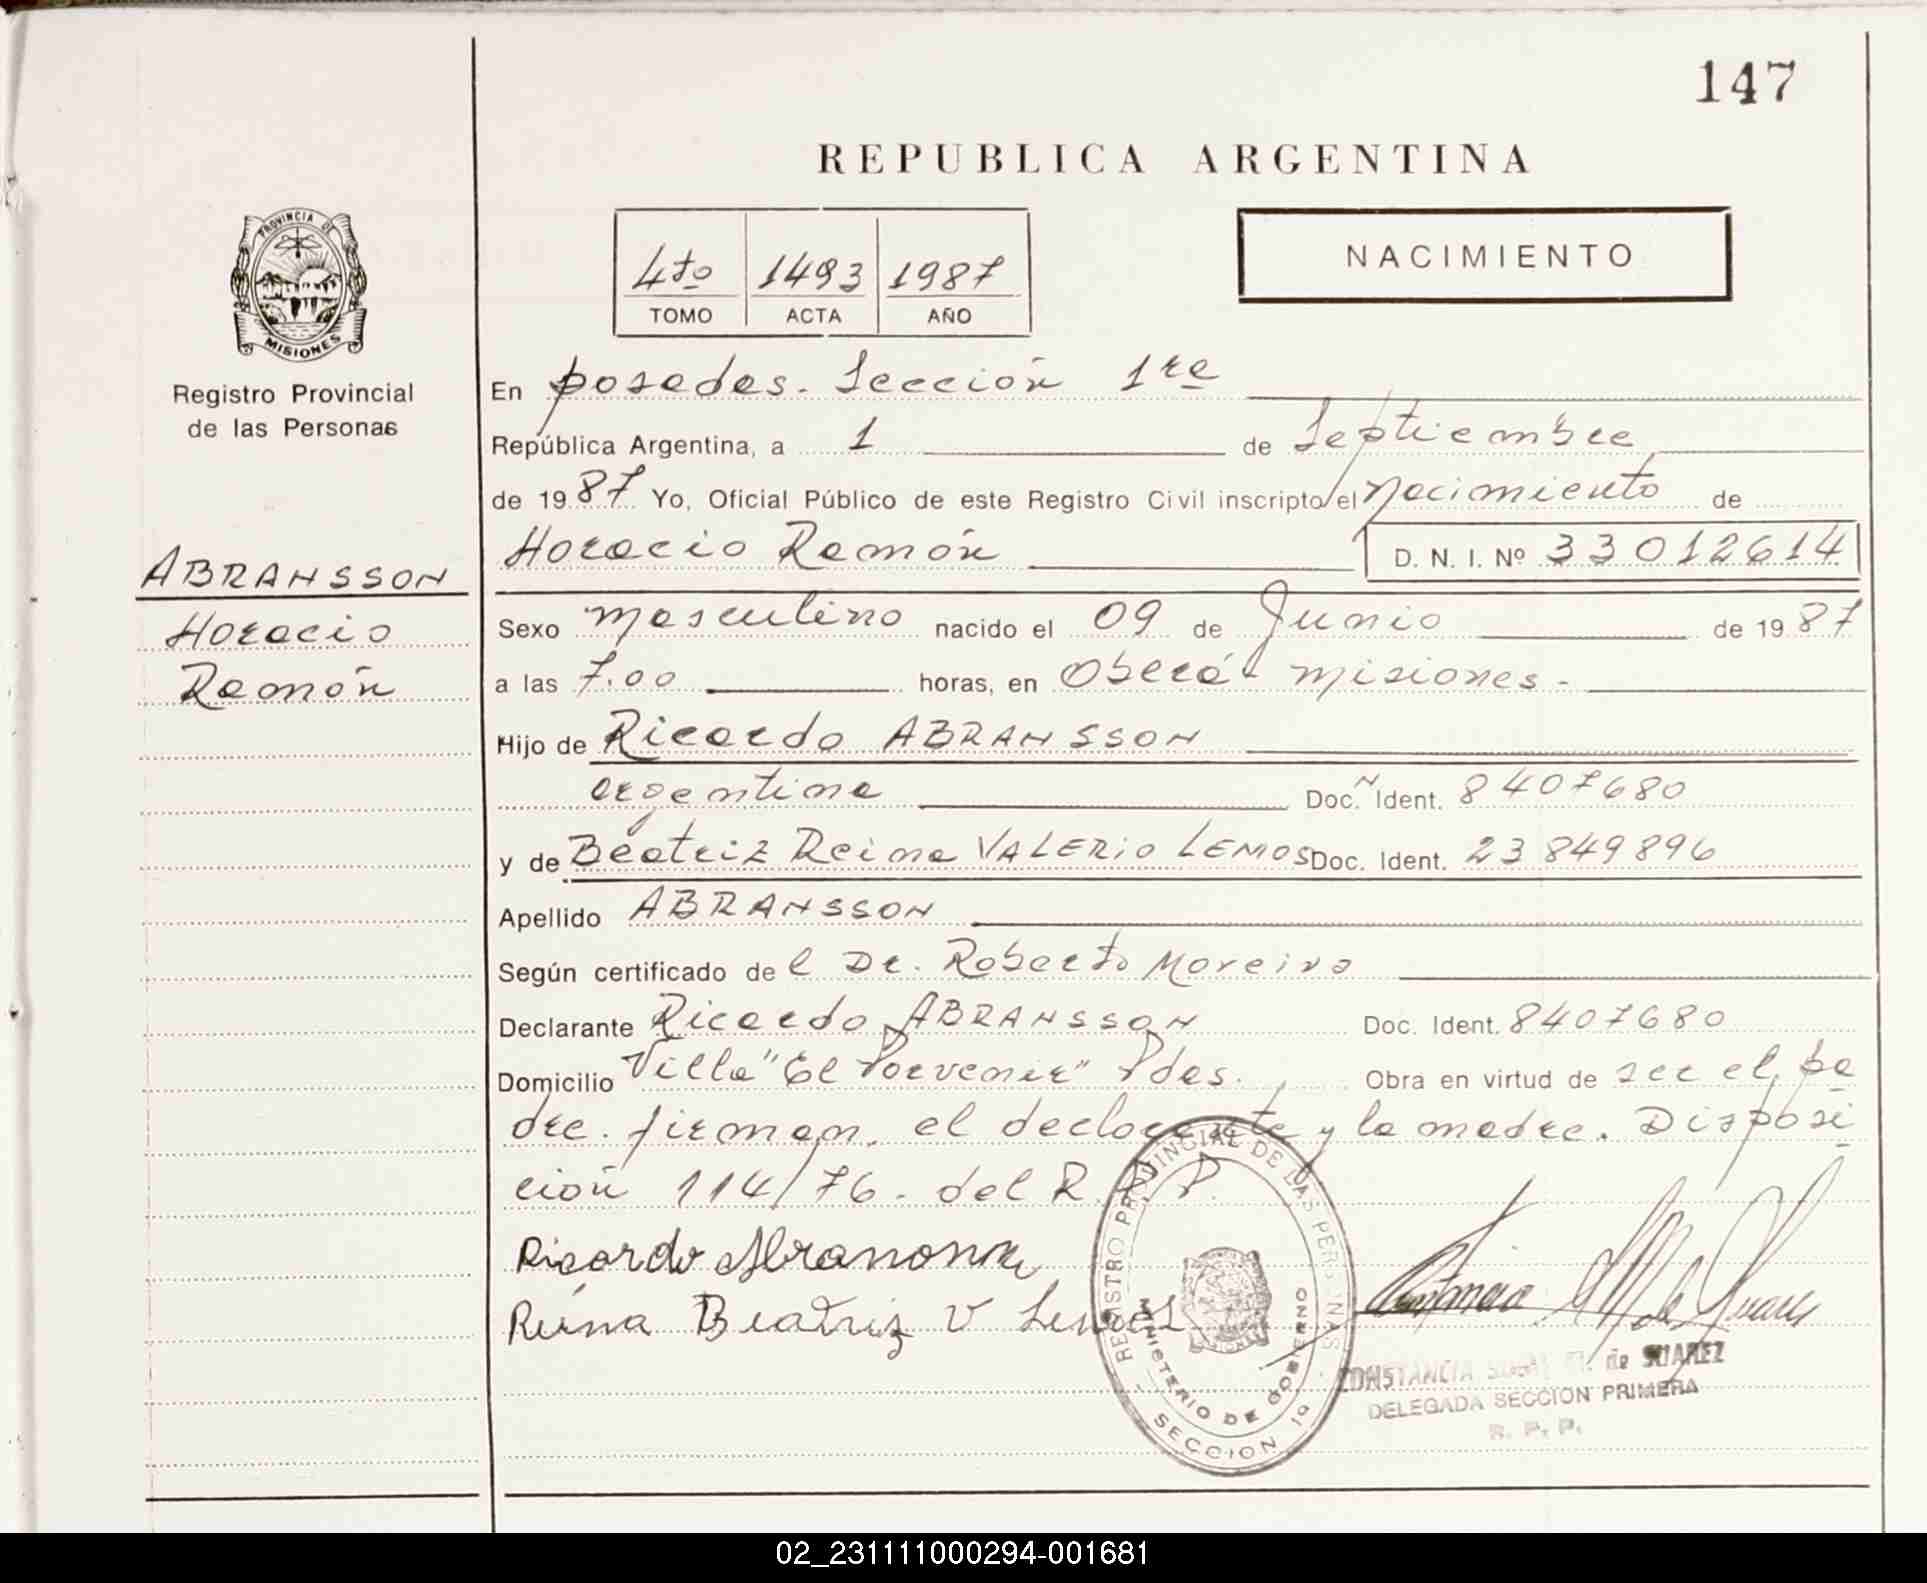 147
REPUBLICA ARGENTINA
PROVINCIA DE
MISIONES
Registro Provincial
de las Personas
4to 1493 1987
TOMO ACTA AÑO
NACIMIENTO
En posadas. Sección 1ra
República Argentina, a 1 de Septiembre
de 1987 Yo, Oficial Público de este Registro Civil inscripto/el Nacimiento de
Horacio Ramón D. N. I. Nº 33012614
ABRANSSON
Horacio
Ramón
Sexo masculino nacido el 09 de Junio de 1987
a las 7.00 horas, en Oberá misiones-
Hijo de Ricardo ABRANSSON
argentina Doc. Ident. 8407680
y de Beatriz Reina VALERIO LEMOS Doc. Ident. 23849896
Apellido ABRANSSON
Según certificado del Dr. Roberto Moreira
Declarante Ricardo ABRANSSON Doc. Ident. 8407680
Domicilio Villa "El Porvenir" Pdas. Obra en virtud de ser el pa
dre. firman. el declarante y la madre. Disposi
ción 114/76. del R. P. P.
Ricardo
Reina Beatriz V Lemos
REGISTRO PROVINCIAL DE LAS PERSONAS
MINISTERIO DE GOBIERNO
SECCION 1a
CONSTANCIA M. de SUAREZ
DELEGADA SECCION PRIMERA
R. P. P.
02_231111000294-001681